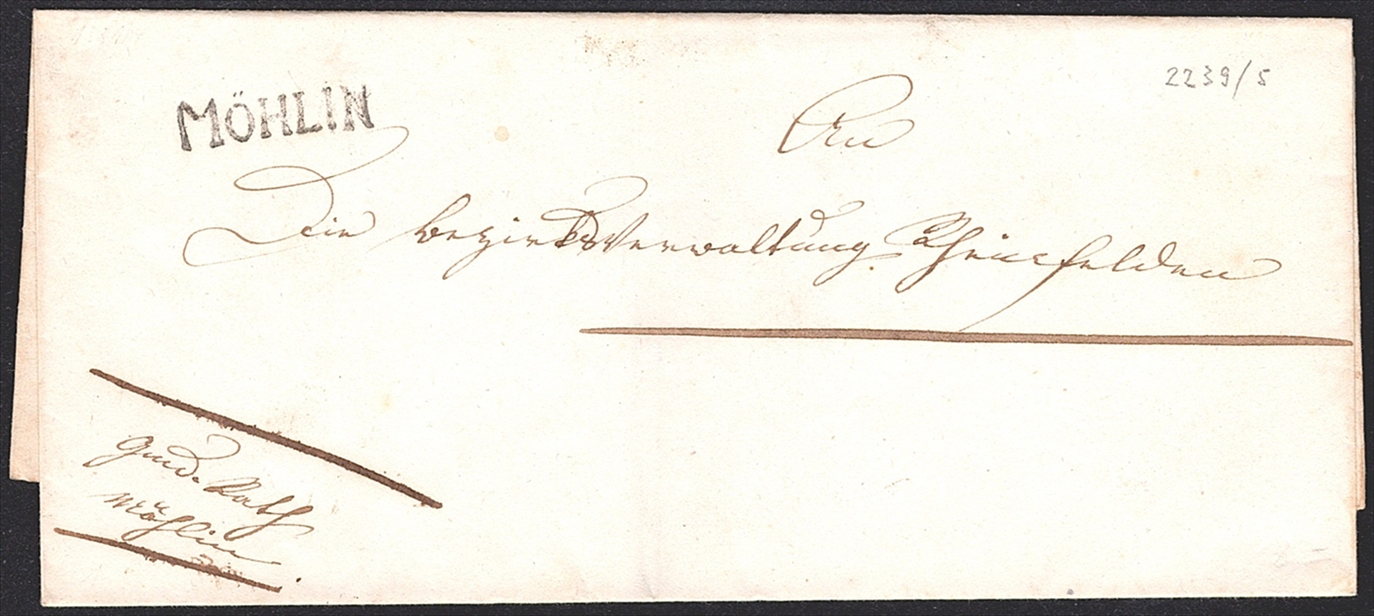 MÖHLIN
2239/5
An
Die Bezirksverwaltung Rheinfelden
Gmd. Rath
Möhlin.